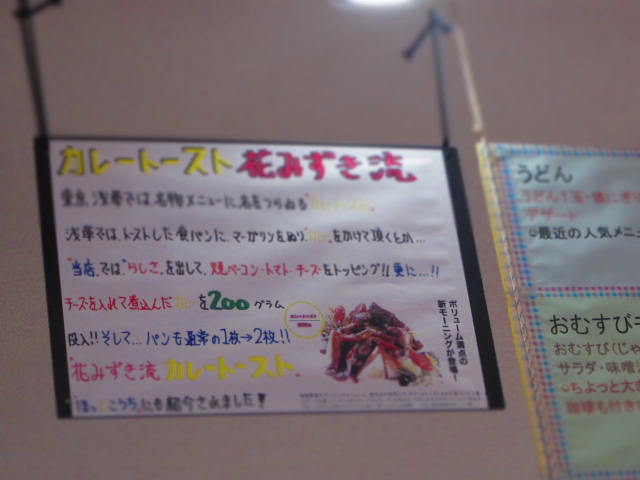 カレートースト 花みずき流
東京 浅草では、名物メニューに名をつらねる"カレートースト"
浅草では、トーストした食パンに、マーガリンをぬり、カレーをかけて頂くとか…
"当店"では"らしさ"を出して、焼ベーコン・トマト・チーズをトッピング!!更に…!!
チーズを入れて煮込んだカレーを200グラム
投入!!そして…パンも通常の1枚→2枚!!
"花みずき流 カレートースト"
にも紹介されました!
ボリューム満点の
新モーニングが登場!
うどん
うどん1玉・
デザート
○最近の人気メニ
おむすび
おむすび(じゃ
サラダ・味噌
○ちょっと大
珈琲も付き